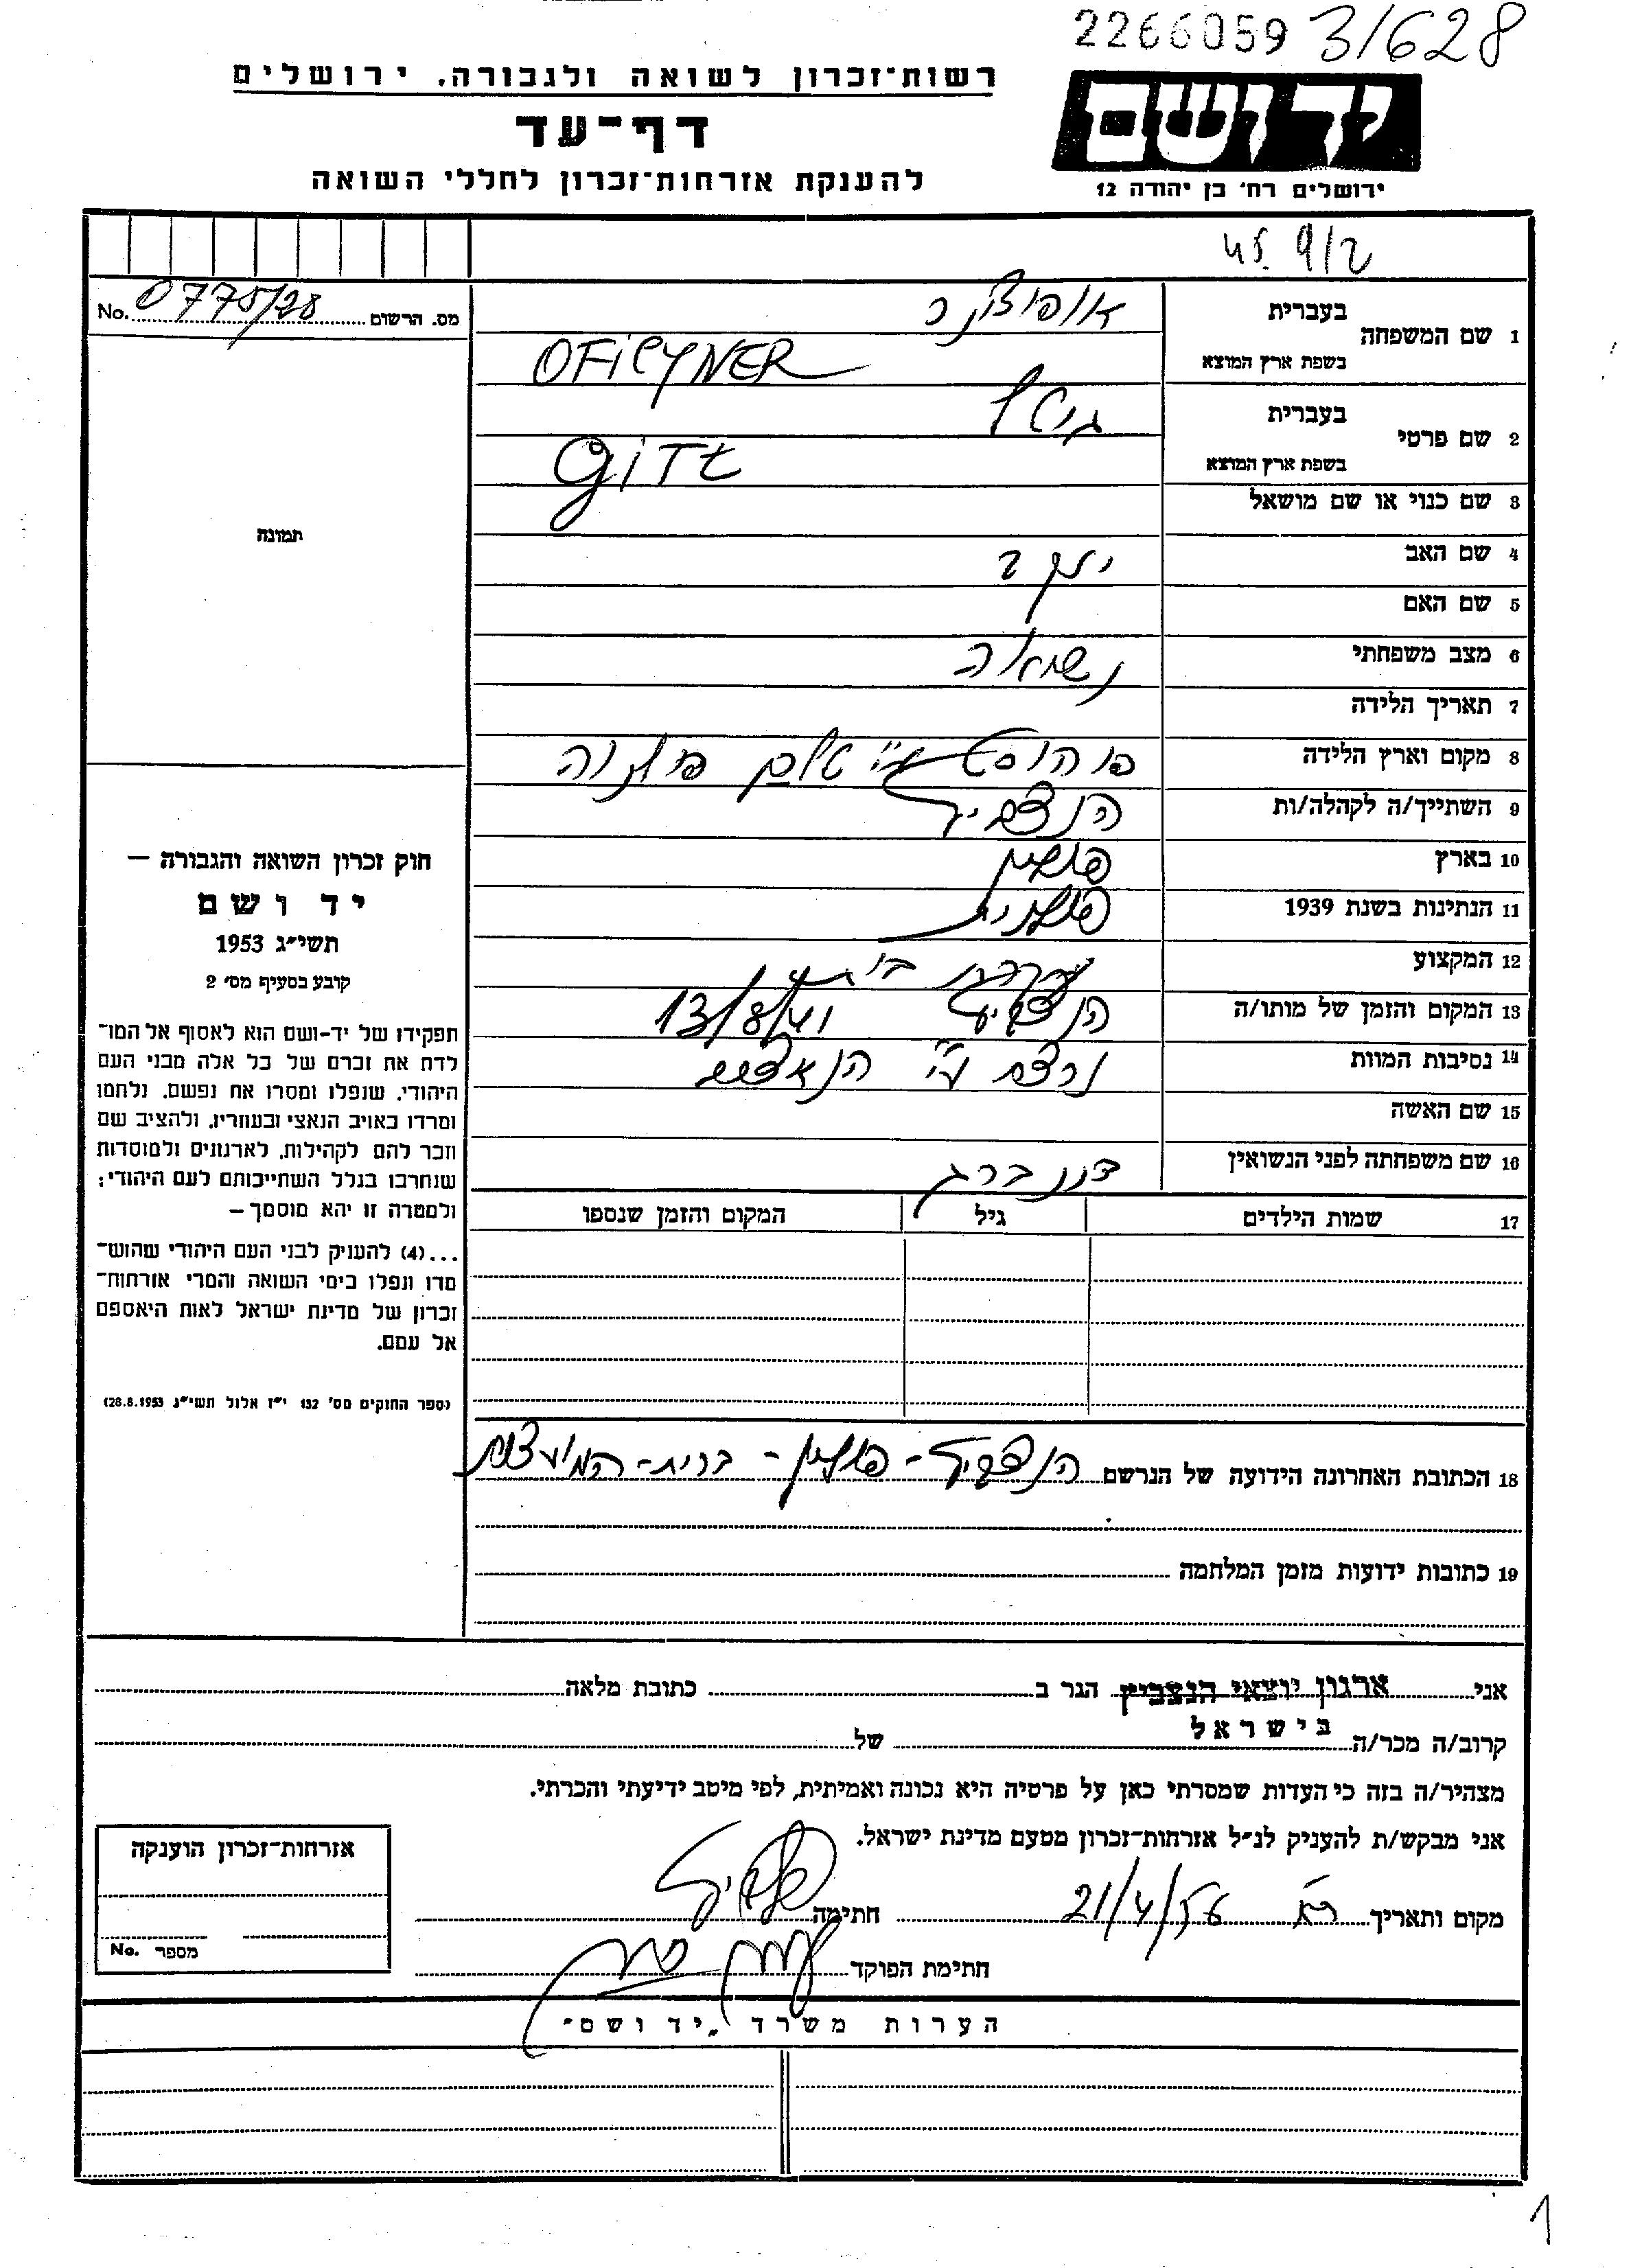 2266059 31628
רשות־זכרון לשואה ולגבורה, ירושלים
דף־עד
להענקת אזרחות־זכרון לחללי השואה
יד ושם
ירושלים רח׳ בן יהודה 12
מס. הרשום 0775/28 No.
1 שם המשפחה
בעברית
בשפת ארץ המוצא OFICYNER
2 שם פרטי
בעברית גיטל
בשפת ארץ המוצא
3 שם כנוי או שם מושאל
4 שם האב יעקב
5 שם האם
6 מצב משפחתי נשואה
7 תאריך הלידה
8 מקום וארץ הלידה
9 השתייך/ה לקהלה/ות הנצביץ
10 בארץ פולין
11 הנתינות בשנת 1939 פולנית
12 המקצוע עקרת בית
13 המקום והזמן של מותו/ה הנצביץ 13/8/41
14 נסיבות המוות נרצח ע״י הנאצים
15 שם האשה
16 שם משפחתה לפני הנשואין
17 שמות הילדים גיל המקום והזמן שנספו
18 הכתובת האחרונה הידועה של הנרשם הנצביץ - פולין - ברית-המועצות
19 כתובות ידועות מזמן המלחמה
תמונה
חוק זכרון השואה והגבורה —
יד ושם
תשי״ג 1953
קובע בסעיף מס׳ 2
תפקידו של יד-ושם הוא לאסוף אל המו־
לדת את זכרם של כל אלה מבני העם
היהודי, שנפלו ומסרו את נפשם, נלחמו
ומרדו באויב הנאצי ובעוזריו, ולהציב שם
וזכר להם לקהילות, לארגונים ולמוסדות
שנחרבו בגלל השתייכותם לעם היהודי;
ולמטרה זו יהא מוסמך —
...(4) להעניק לבני העם היהודי שהוש־
מדו ונפלו בימי השואה והמרי אזרחות־
זכרון של מדינת ישראל לאות היאספם
אל עמם.
(ספר החוקים מס׳ 132 י״ז אלול תשי״ג 28.8.1953)
אני ארגון יוצאי הנצביץ הגר ב כתובת מלאה
בישראל
קרוב/ה מכר/ה של
מצהיר/ה בזה כי העדות שמסרתי כאן על פרטיה היא נכונה ואמיתית, לפי מיטב ידיעתי והכרתי.
אני מבקש/ת להעניק לנ״ל אזרחות-זכרון מטעם מדינת ישראל.
מקום ותאריך 21/4/56 חתימה
חתימת הפוקד
אזרחות-זכרון הוענקה
מספר No.
הערות משרד „יד ושם״
1